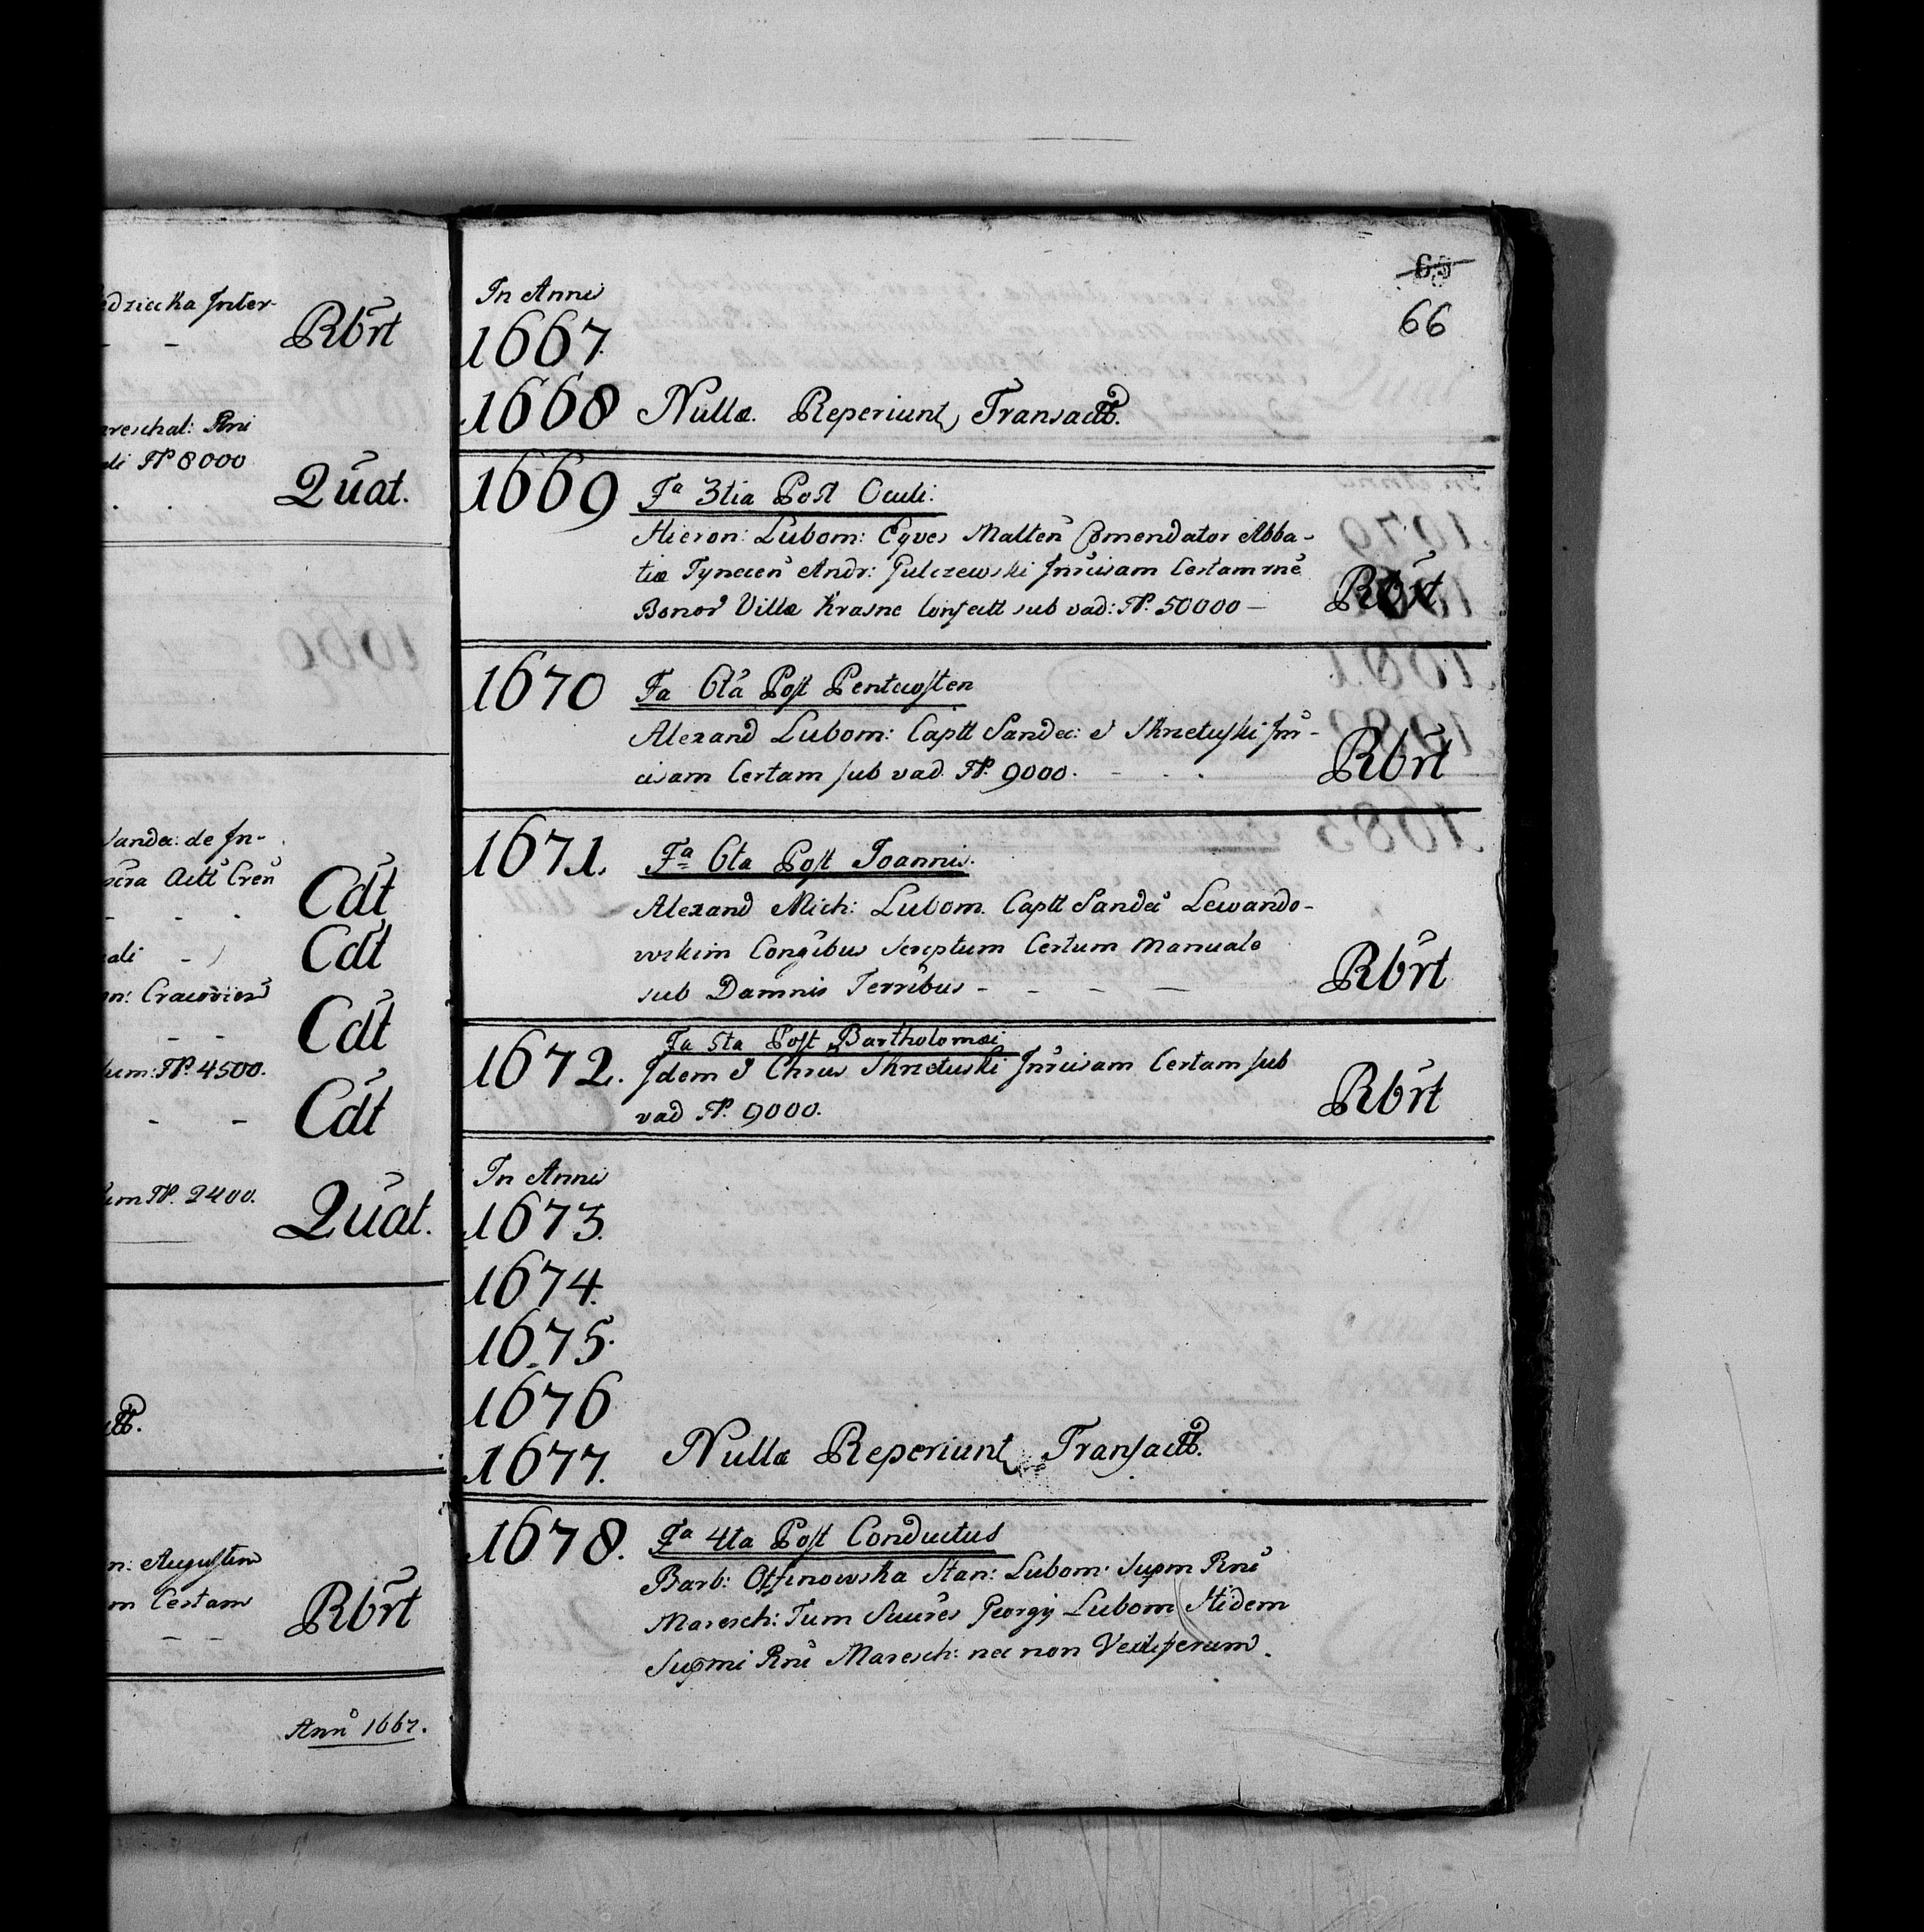 dziecka Inter-
- - Rbrt
areschal: Rni
di FP 8000
Quat.
Sandec: de In-
Actt Cren
Cdt
ali - Cdt
on: Cracovien
- - Cdt
FP. 4500.
- - Cdt
FP. 2400.
Quat.
ctt.
n: Augustin
m Certam
- - Rbrt
Ann 1667.
65
66
In Annis
1667.
1668 Nullæ Reperiunt Transactt.
1669 Fa 3tia Post Oculi:
Hieron: Lubom: Eques Malten Comendator Abba-
tiæ Tynecen Andr: Gulczewski Inrcisam Certam rne
Bonor Villæ Krasne Confectt sub vad: FP. 50000 —
Rbrt
1670 Fa 6ta Post Pentecosten
Alexand Lubom: Captt Sandec: & Skrzetuski Inr-
cisam Certam sub vad FP. 9000. - . .
Rbrt
1671. Fa 6ta Post Joannis.
Alexand Mich: Lubom. Captt Sandec Lewando-
wskim Congibus Scriptum Certum Manuale
sub Damnis Terribus - - - —
Rbrt
1672. Fa 5ta Post Bartholomæi
Idem & Chrus Skrzetuski Inrcisam Certam sub
vad FP. 9000.
Rbrt
In Annis
1673.
1674.
1675.
1676
1677. Nullæ Reperiunt Transactt.
1678. Fa 4ta Post Conductus
Barb: Stan: Lubom: Supm Rni
Maresch: Tum Sucres Georgij Lubom Itidem
Supmi Rni Maresch: nec non Vexiliferum.